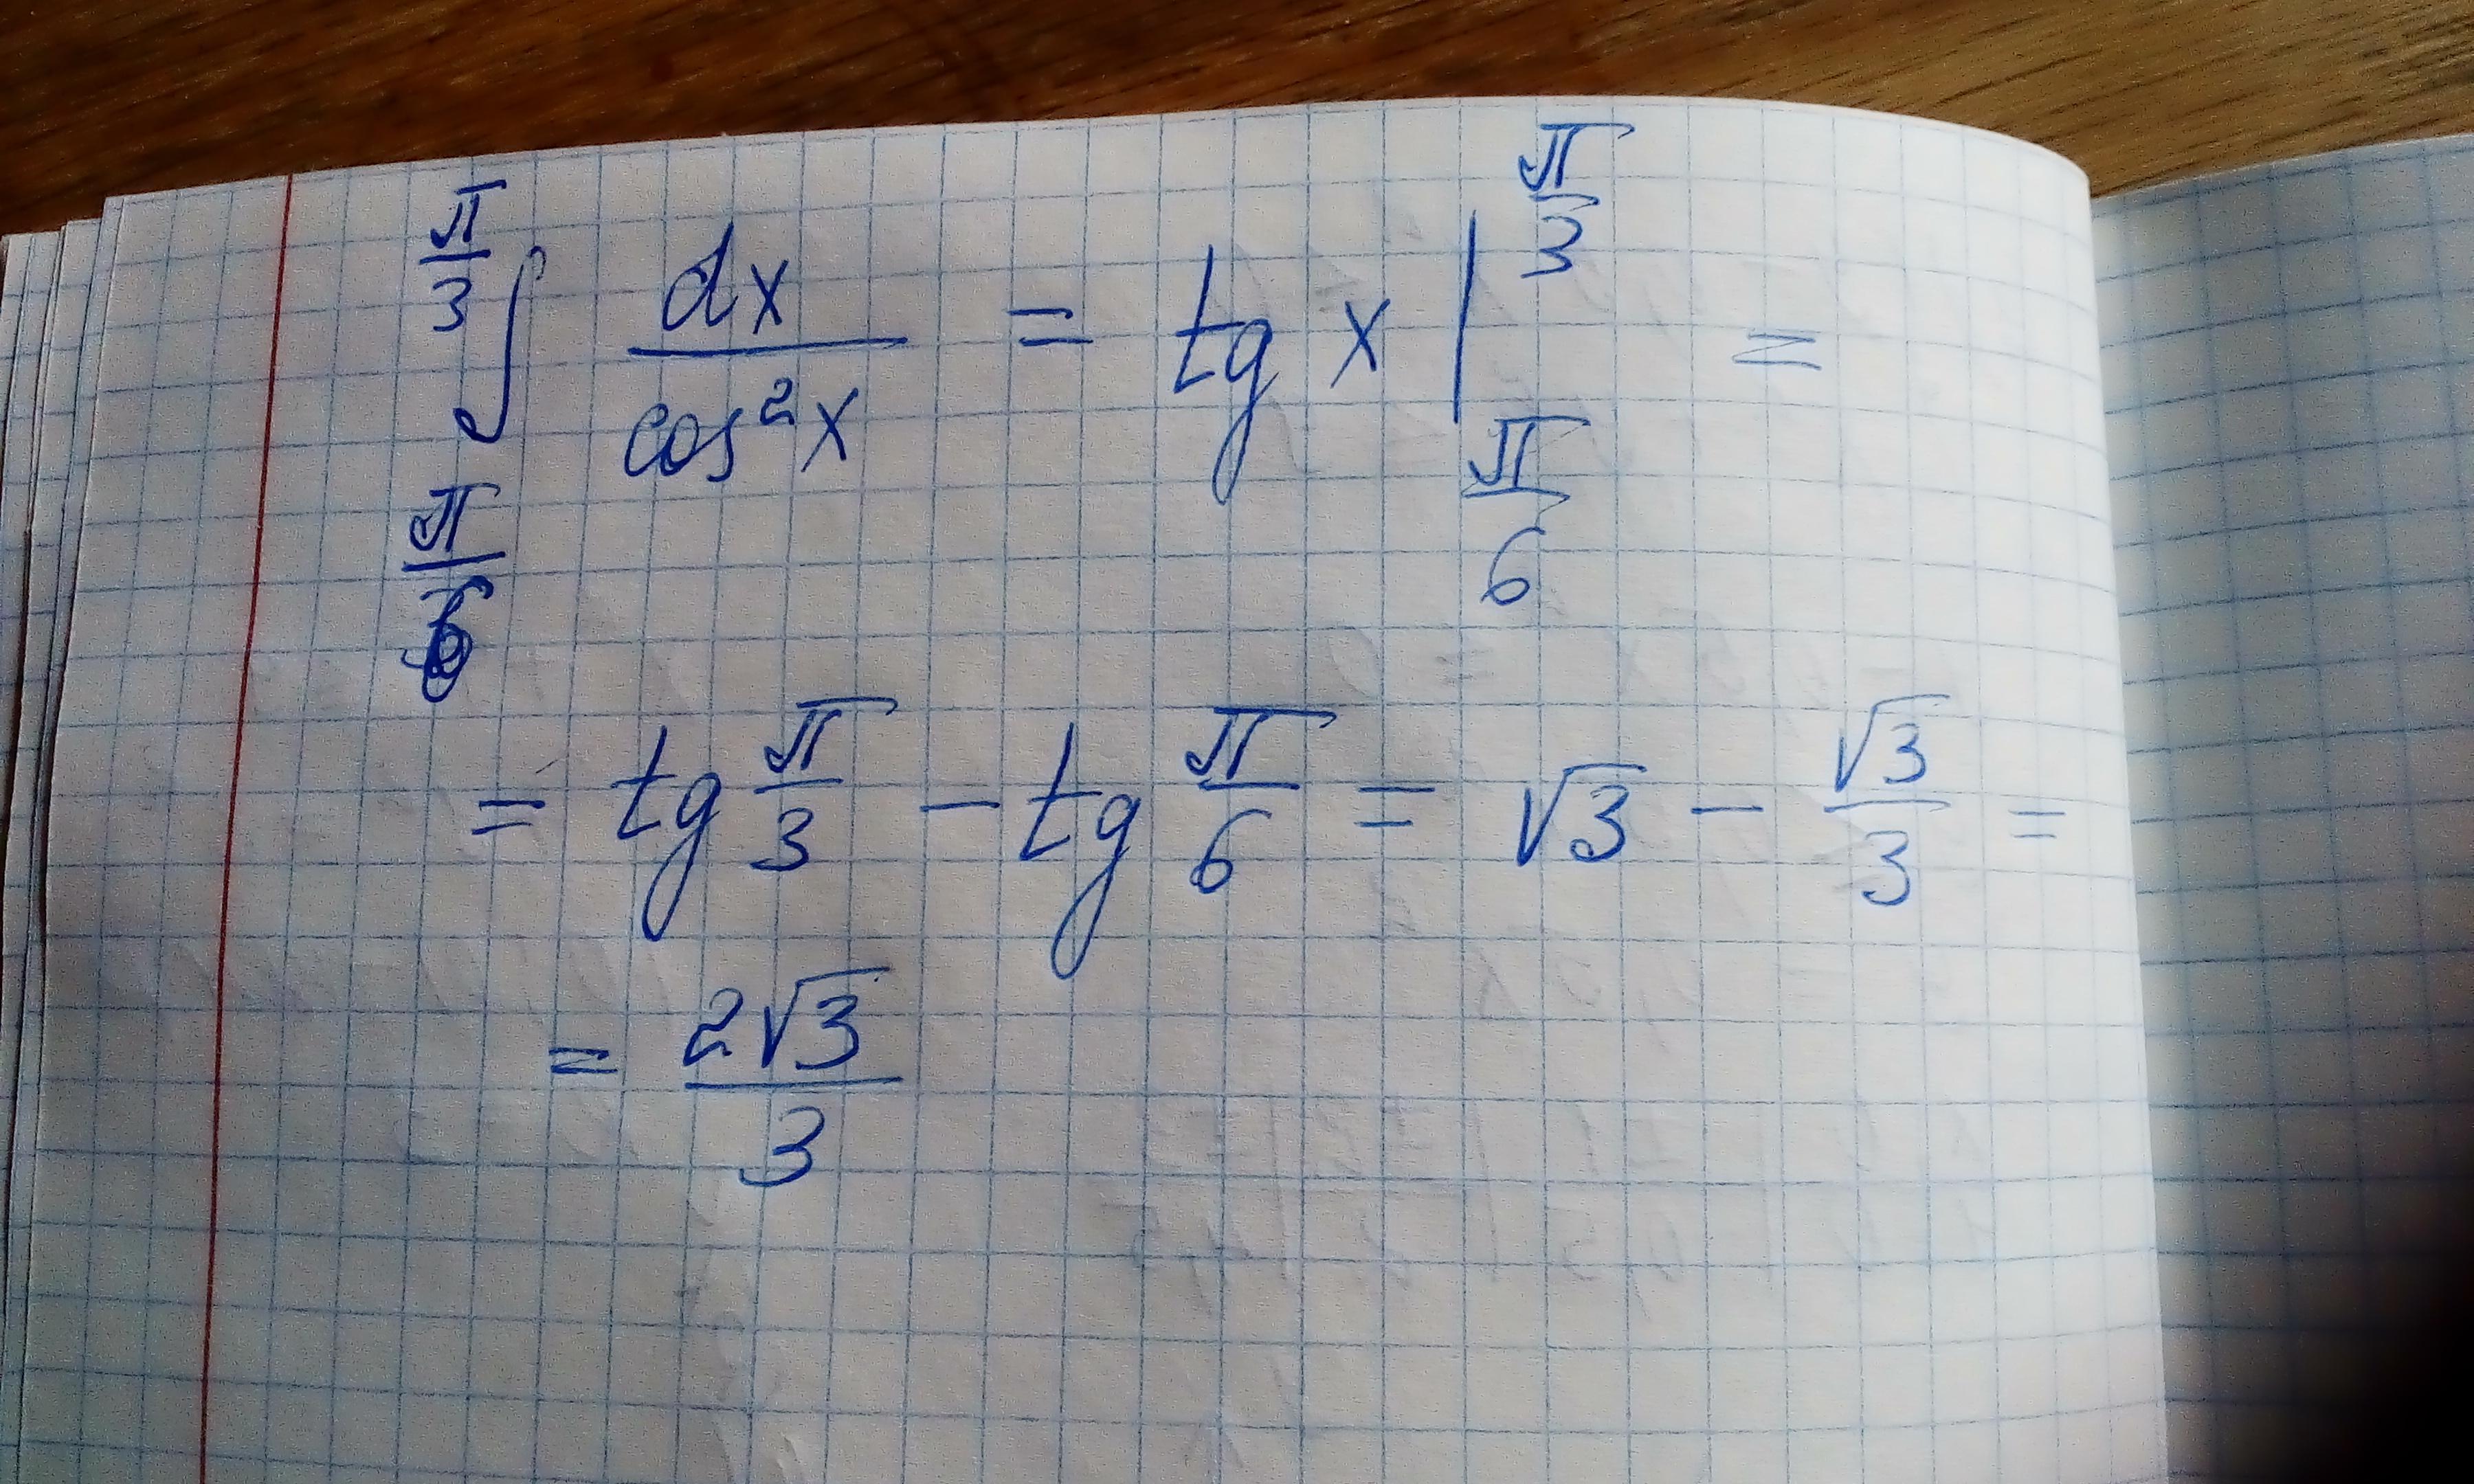 ∫_{π/6}^{π/3} dx/cos²x = tg x |_{π/6}^{π/3} =
= tg π/3 − tg π/6 = √3 − √3/3 =
= 2√3/3